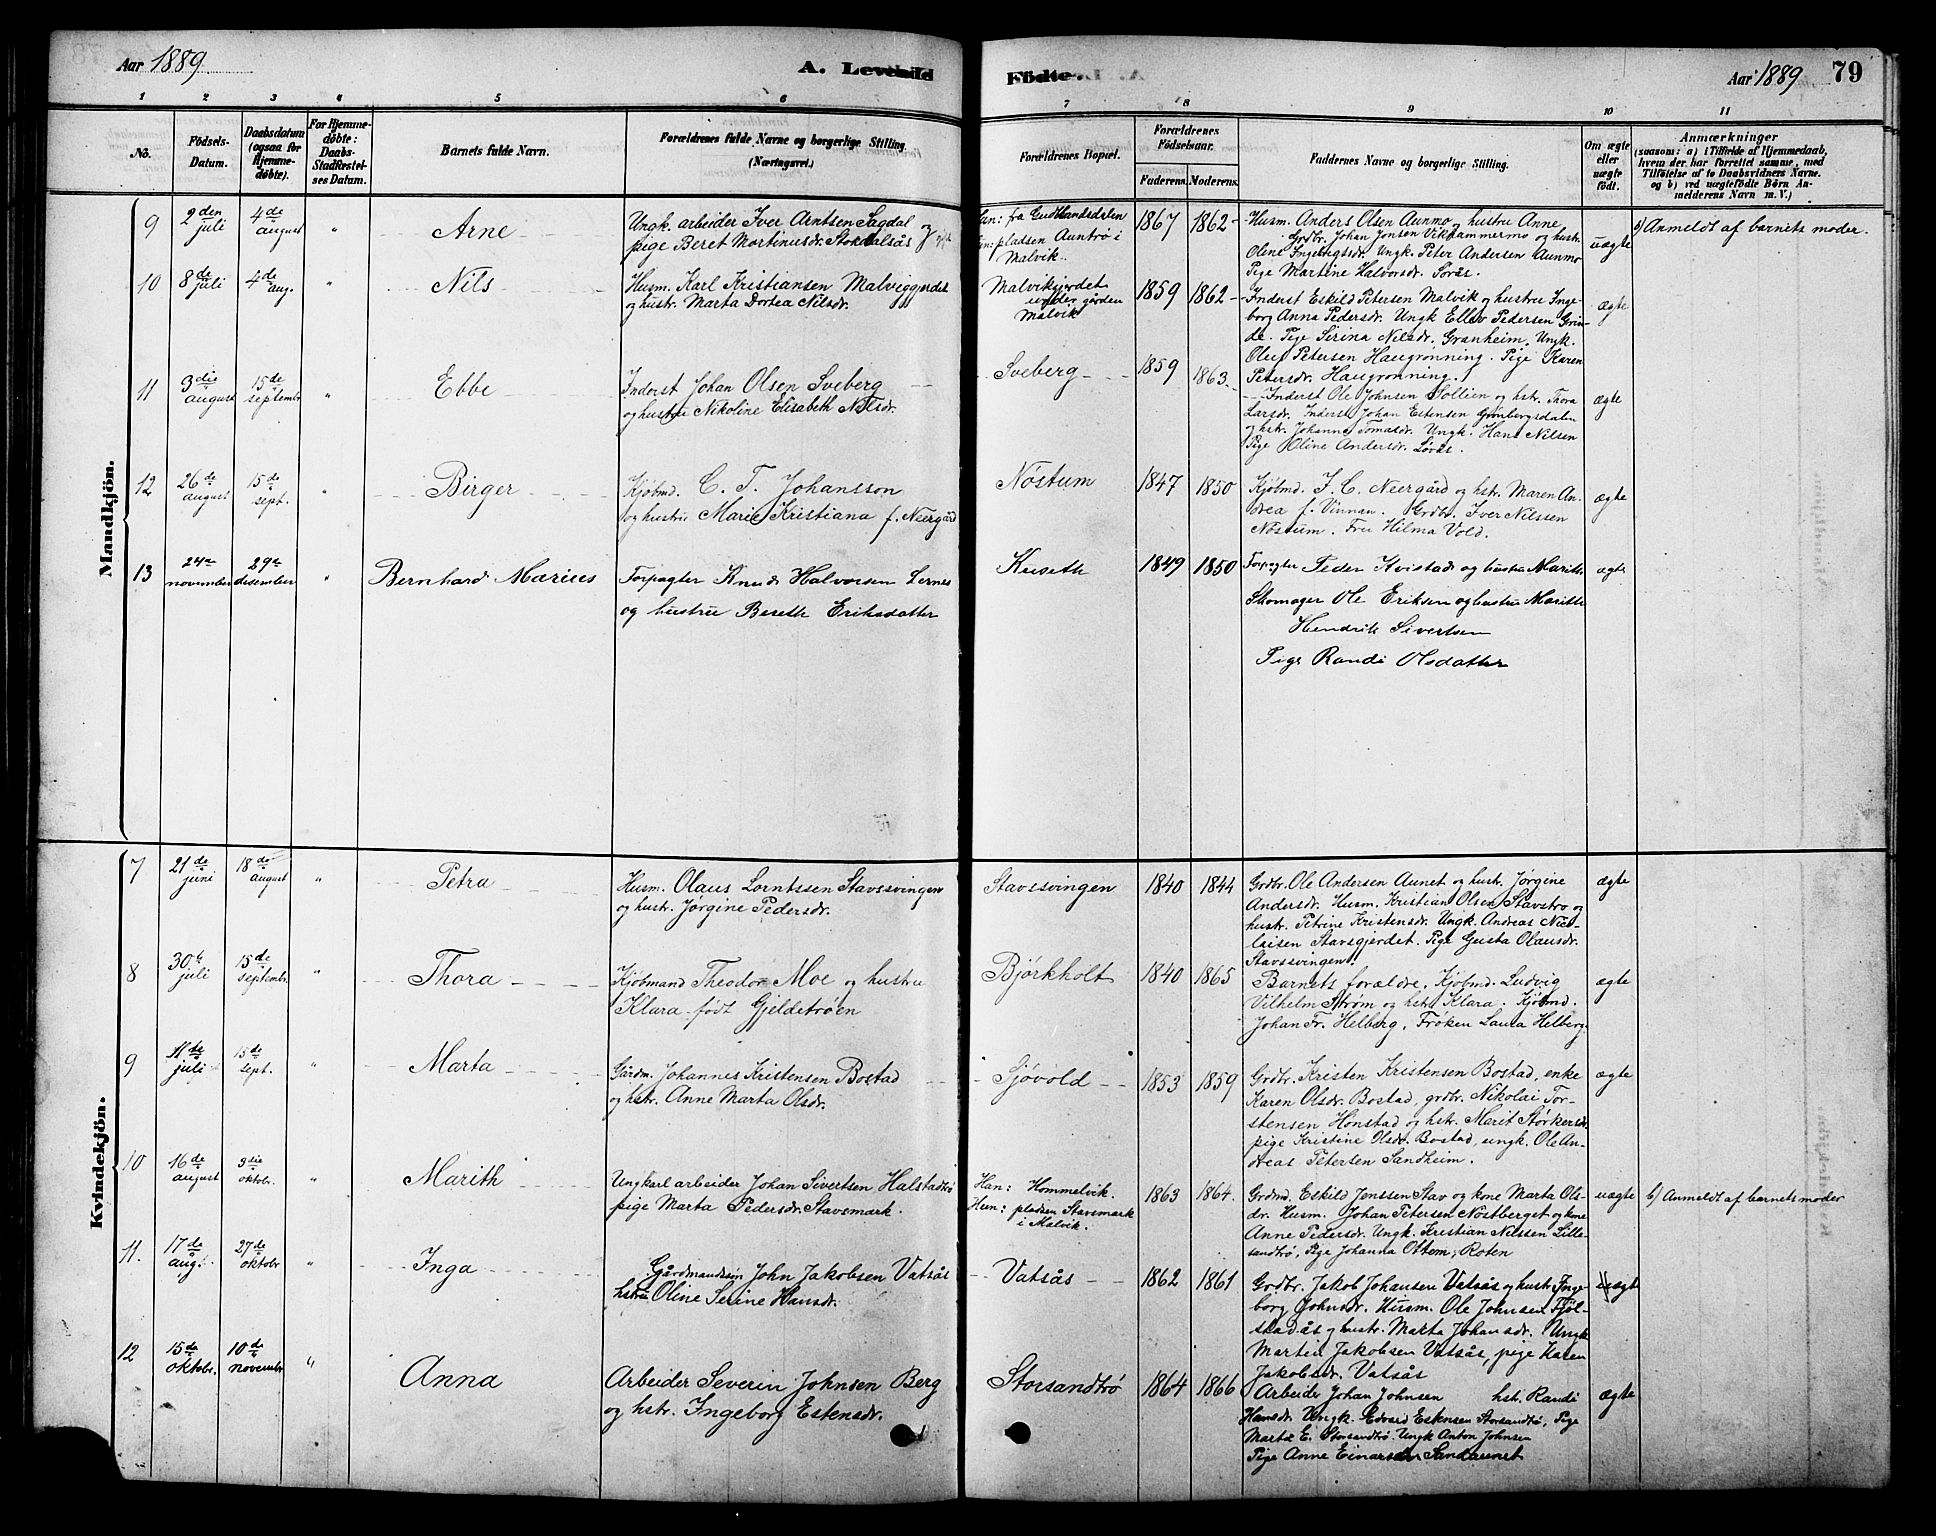 Aar 1889
A. Levende
Födte.
Aar 1889 79
1 2 3 4 5 6 7 8 9 10 11
No.
Födsels-
Datum.
Daabsdatum
(ogsaa for
Hjemme-
døbte).
For Hjemme-
døbte:
Daabs-
Stadfæstel-
ses Datum.
Barnets fulde Navn.
Forældrenes fulde Navne og borgerlige Stilling.
(Næringsvei.)
Forældrenes Bopæl.
Forældrenes
Födselsaar.
Faderens. Moderens.
Faddernes Navne og borgerlige Stilling.
Om ægte
eller
uægte
født.
Anmærkninger
(saasom: a) i Tilfælde af Hjemmedaab,
hvem der har forrettet samme, med
Tilföielse af to Daabsvidners Navne.
og b) ved uægtefödte Börn An-
melderens Navn m. V.)
Mandkjön.
9 2den juli 4de august " Arne
Ungk. arbeider Iver Arntsen Sagdal og
pige Beret Martinusdr. Stordalsås
Han: fra Gudbrandsdalen
Hun: pladsen Auntrö i
Malvik.
1867 1862
Husm. Anders Olsen Aunmo og hustru Anne
Grdbr. Johan Jonsen Vikhammermo og hustr.
Oline Ingebrigtsdr. Ungk. Peter Andersen Aunmo
Pige Martine Halvorsdr. Sørås.
uægte
b) Anmeldt af barnets moder.
10 8de juli 4de aug. " Nils
Husm. Karl Kristiansen Malviggjerdet
og hustr. Marta Dortea Nilsdr.
Malvikgjerdet
under gården
Malvik
1859 1862
Inderst Eskild Petersen Malvik og hustru Inge-
borg Anna Pedersdr. Ungk Ellev Petersen Grin-
de. Pige Sirina Nilsdr. Granheim, Ungk.
Oluf Petersen Haugrønning. Pige Karen
Petersdr. Haugrønning.
ægte
11 3die august 15de septembr " Ebbe
Inderst Johan Olsen Sveberg
og hustru Nikoline Elisabeth Nilsdr.
Sveberg
1859 1863
Inderst Ole Johnsen Sollien og hstr. Thora
Larsdr. Inderst Johan Estensen Grønbergsdalen
og hstr. Johanne Tomasdr. Ungk. Hans Nilsen
Pige Oline Andersdr. Sørås.
ægte
12 26de august 15de sept. " Birger
Kjøbmd. C. T. Johansson
og hustru Marie Kristiana f. Neergård
Nöstum
1847 1850
Kjøbmd. F. C. Neergård og hstr. Maren An-
drea f. Vinnan. Grdbr. Iver Nilssen
Nöstum. Fru Hilma Vold.
ægte
13 24de november 29de desember " Bernhard Marius
Forpagter Knud Halvorsen Lernes
og hustru Bereth Eriksdatter
Kruseth
1849 1850
Forpagter Peder Kvistad og hustru Marith
Skomager Ole Eriksen og hustru Marith
Hendrik Sivertsen
Pige Randi Olsdatter
ægte
Kvindekjön.
7 21de juni 18de august " Petra
Husm. Olaus Lorntssen Stavssvingen
og hustr. Jørgine Pedersdr.
Stavssvingen
1840 1844
Grdbr. Ole Andersen Aunet og hustr. Jørgine
Andersdr. Husm. Kristian Olsen Stavstro og
hustr. Petrine Kristensdr. Ungk. Andreas Nico-
laisen Stavsgjerdet. Pige Gusta Olausdr.
Stavssvingen.
ægte
8 30te juli 15de septembr. " Thora
Kjøbmand Theodor Moe og hustru
Klara født Gjeldetrøen
Bjørkholt
1840 1865
Barnets forældre, Kjøbmd. Ludvig
Vilhelm Strøm og hstr. Klara. Kjøbmd.
Johan Fr. Helberg, Frøken Laura Helberg
ægte
9 11te juli 15de sept. " Marta
Gårdm. Johannes Kristensen Bostad
og hstr. Anne Marta Olsdr.
Sjøvold
1853 1859
Grdbr. Kristen Kristensen Bostad, enke
Karen Olsdr. Bostad, grdbr. Nikolai Tor-
stensen Honstad og hstr. Marit Størkersdr.
pige Kristine Olsdr. Bostad, ungk. Ole An-
dreas Petersen Sandheim.
ægte
10 16de august 3die oktobr. " Marith
Ungkarl arbeider Johan Sivertsen Halstadtrø
pige Marta Pedersdr. Stavsmark.
Han: Hommelvik.
Hun: pladsen Stavsmark
i Malvik.
1863 1864.
Grdmd. Eskild Jenssen Stav og kone Marta Ols-
dr. Husm. Johan Petersen Nöstberget og kone
Anne Pedersdr. Ungk. Kristian Nilssen Lille-
sandtrø, Pige Johanna Ottem, Roten
uægte
b) Anmeldt af barnets moder
11. 17de aug. 27de oktobr " Inga
Gårdmandssøn John Jakobsen Vatsås
hstru Oline Serine Hansdr.
Vatsås
1862 1861
Grdbr. Jakob Johansen Vatsås og hustr. Inge-
borg Johnsdr. Husm. Ole Johnsen Fjöl-
stadås og hustr. Marta Johansdr. Ungk
Martin Jakobsen Vatsås, pige Karen
Jakobsdr. Vatsås
ægte
12 15de oktobr. 10de novembr " Anna
Arbeider Severin Johnsen Berg
og hstr. Ingeborg Estensdr.
Storsandtrø
1864 1866
Arbeider Johan Johnsen hstr. Randi
Hansdr. Ungk. Edvard Estensen Storsandtrø, Pige
Marta E. Storsandtrø. Ungk Anton Johnsen
Pige Anne Einarsdr Sandaunet
ægte